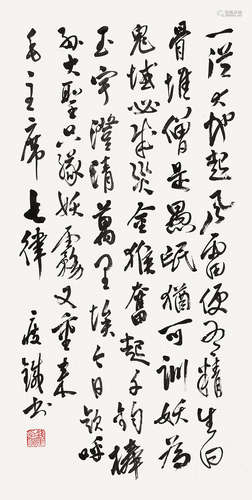 一從大地起風雷便有精生白
骨堆僧是愚氓猶可訓妖為
鬼蜮必成災金猴奮起千鈞棒
玉宇澄清萬里埃今日歡呼
孫大聖只緣妖霧又重來
毛主席七律
瘦鐵書